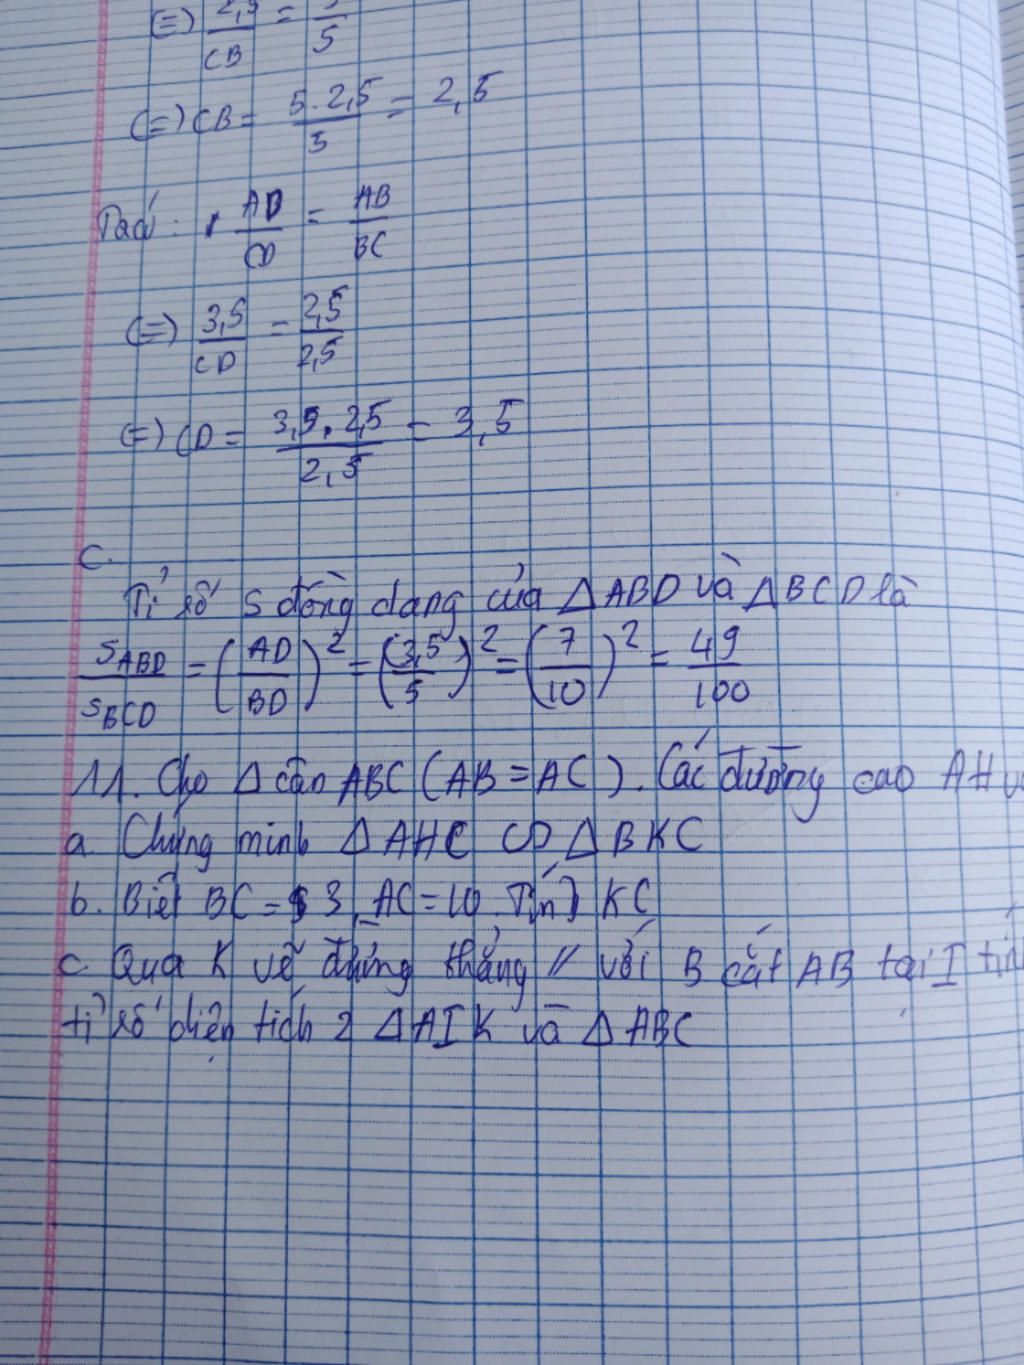 (=) 2,5/CB = /5
(=) CB = 5.2,5/5 = 2,5
Ta có: AD/CD = AB/BC
(=) 3,5/CD = 2,5/2,5
(=) CD = 3,5.2,5/2,5 = 3,5
c.
Tỉ số S đồng dạng của △ABD và △BCD là
S_ABD/S_BCD = (AD/BD)² = (3,5/5)² = (7/10)² = 49/100
11. Cho △ cân ABC (AB = AC). Các đường cao AH
a. Chứng minh △AHC ∽ △BKC
b. Biết BC = 3, AC = 10. Tính KC
c. Qua K vẽ đường thẳng // với B cắt AB tại I
tỉ số diện tích 2 △AIK và △ABC